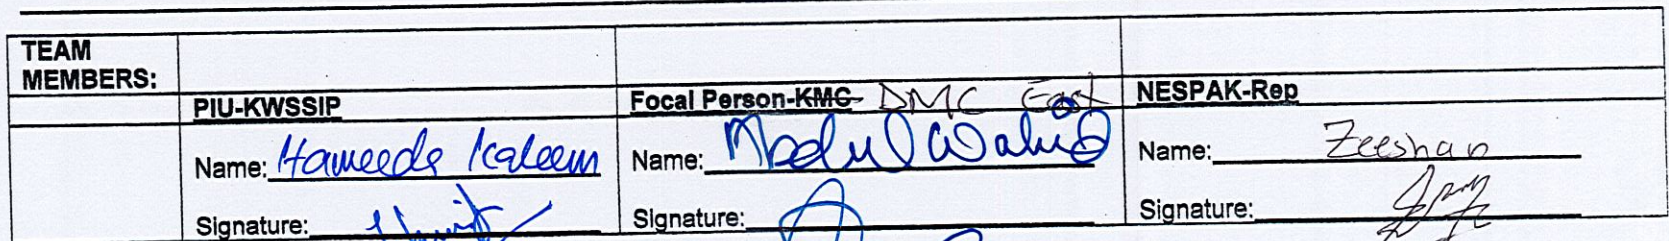 TEAM
MEMBERS:
PIU-KWSSIP
Focal Person-KMC DMC East
NESPAK-Rep
Name: Hameeda Kaleem
Name: Abdul Wahid
Name: Zeeshan
Signature:
Signature:
Signature: